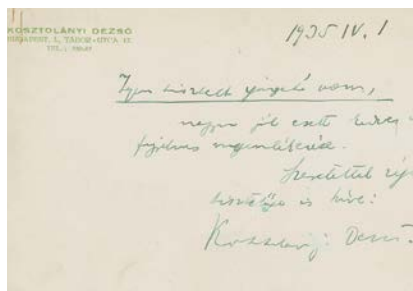 KOSZTOLÁNYI DEZSŐ
BUDAPEST, I., TÁBOR-UTCA 12.
TEL.:
1935 IV. 1
Igen tisztelt uram,
nagyon jól esett kedves
figyelmes megemlékezése.
Szeretettel
tisztelője és híve:
Kosztolányi Dezső.